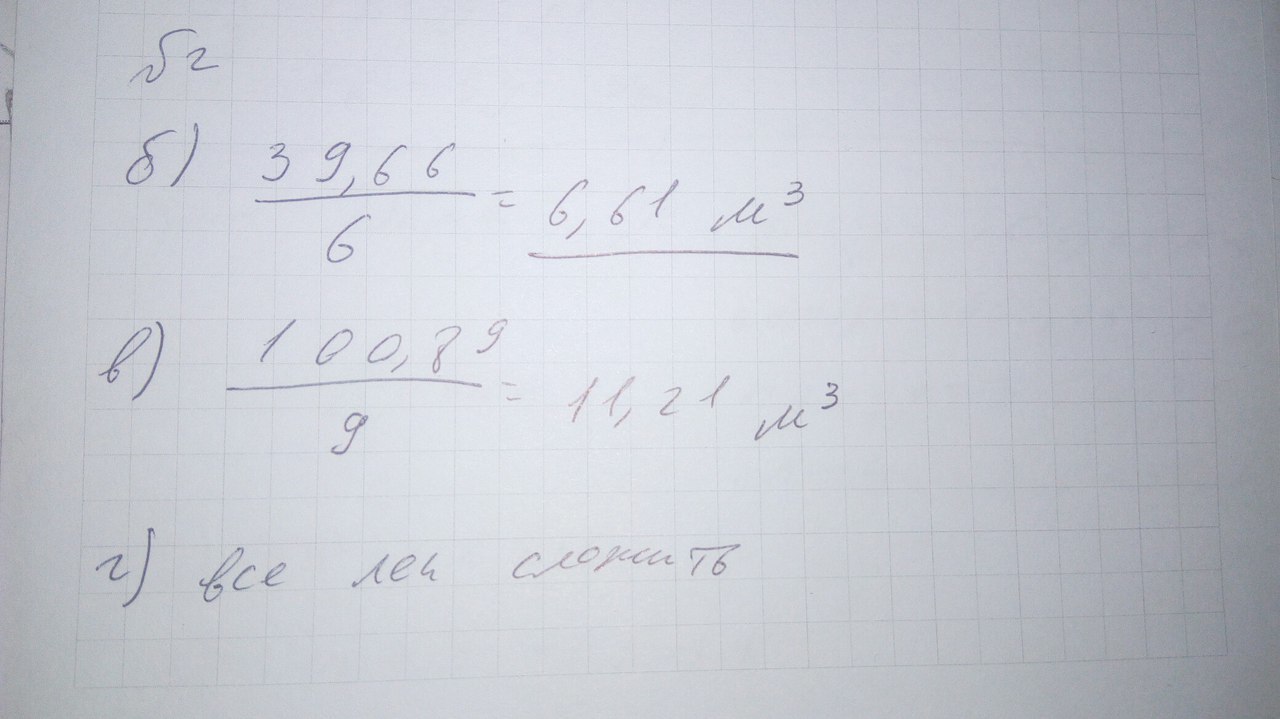 №2
б) 39,66 / 6 = 6,61 м³
в) 100,89 / 9 = 11,21 м³
г) все лен сложить